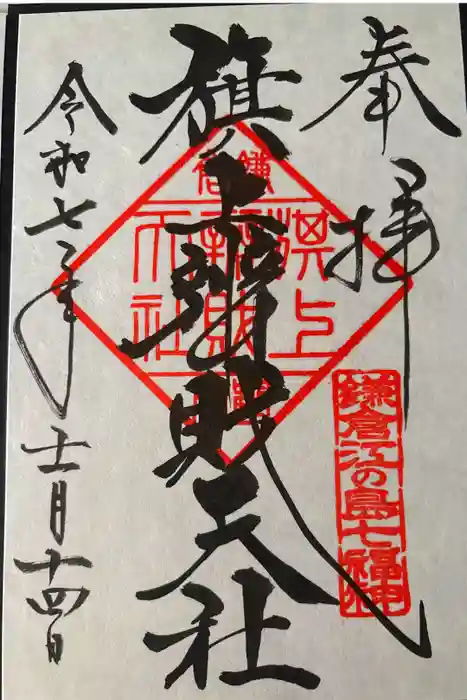 奉拝
旗上辨財天社
令和七年
十二月十四日
鎌倉
旗上
辨財
天社
鎌倉江の島七福神